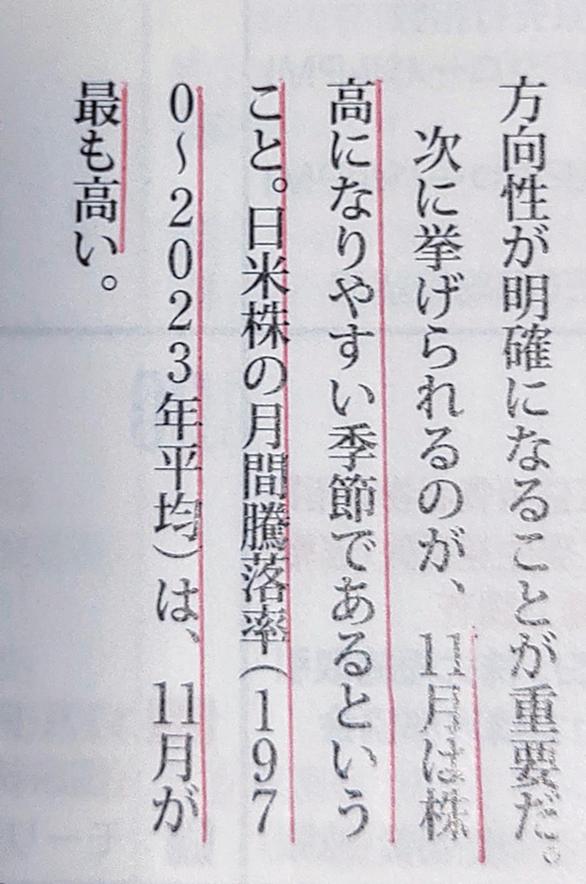 方向性が明確になることが重要だ。
次に挙げられるのが、11月は株
高になりやすい季節であるという
こと。日米株の月間騰落率(197
0～2023年平均)は、11月が
最も高い。